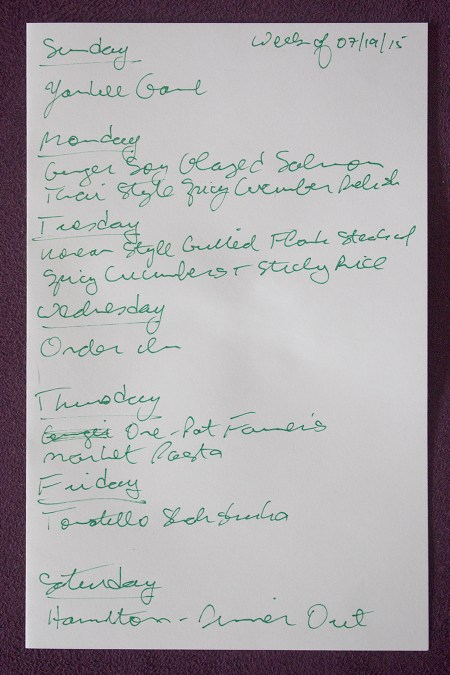 Sunday
Week of 07/19/15
Yankee Game
Monday
Ginger Soy Glazed Salmon
Thai Style Spicy Cucumber Relish
Tuesday
Korean Style Grilled Flank Steak w/
Spicy Cucumbers + Sticky Rice
Wednesday
Order In
Thursday
One-Pot Farmer's
Market Pasta
Friday
Tomatillo Shakshuka
Saturday
Hamilton - Dinner Out